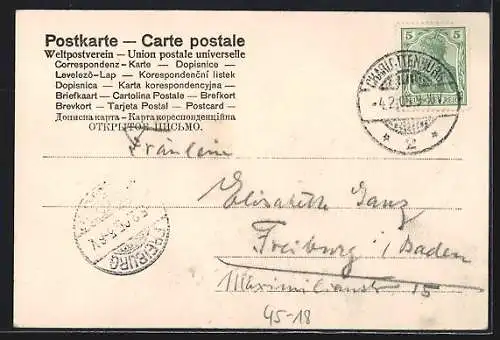 Postkarte — Carte postale
Weltpostverein — Union postale universelle
Correspondenz-Karte — Dopisnice —
Levelező-Lap — Korespondenční listek
Dopisnica — Karta korespondencyjna —
Briefkaart — Cartolina Postale — Brefkort
Brevkort — Tarjeta Postal — Postcard —
Дописна карта — Карта кореспонденційна
ОТКРЫТОЕ ПИСЬМО.
5 5
2
Fräulein
Elisabeth Ganz
Freiburg i/Baden
Maximilianstr 15
FREIBURG
45-18